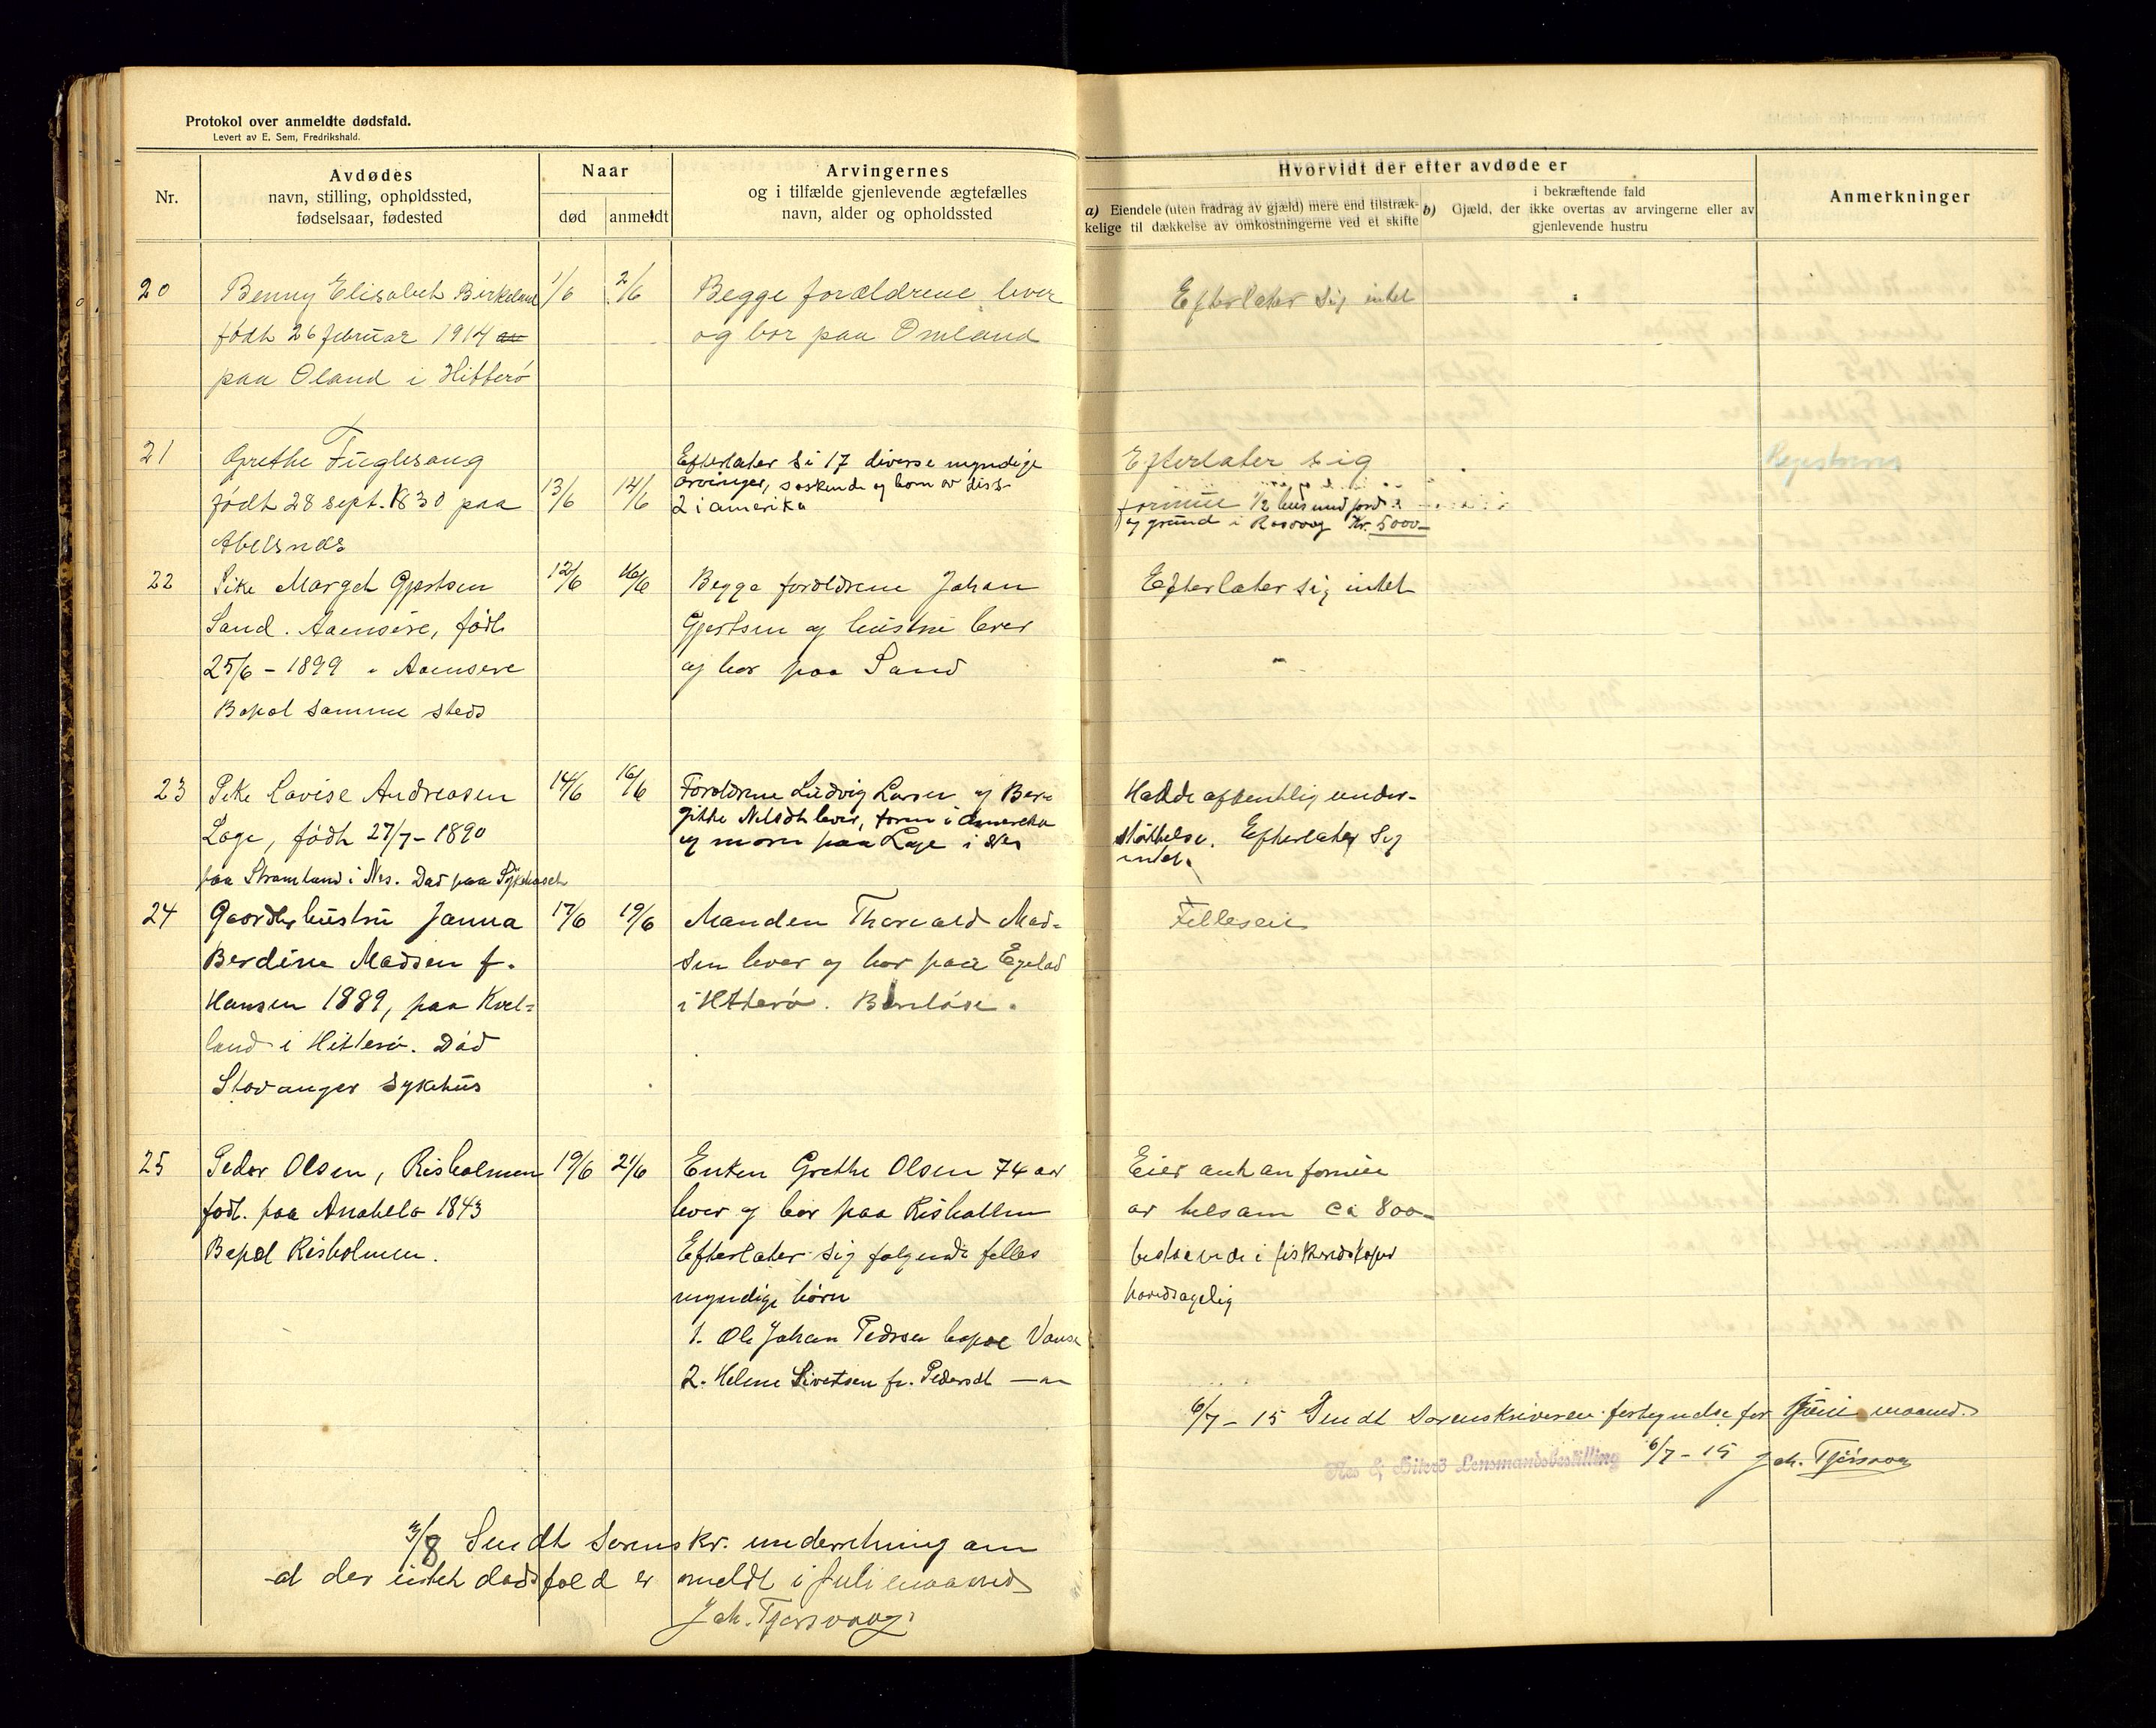 Protokol over anmeldte dødsfald.
Levert av E. Sem, Fredrikshald.
Nr.
Avdødes
navn, stilling, opholdssted,
fødselsaar, fødested
Naar
død
anmeldt
Arvingernes
og i tilfælde gjenlevende ægtefælles
navn, alder og opholdssted
Hvorvidt der efter avdøde er
a) Eiendele (uten fradrag av gjæld) mere end tilstræk-
kelige til dækkelse av omkostningerne ved et skifte
i bekræftende fald
b) Gjæld, der ikke overtas av arvingerne eller av
gjenlevende hustru
Anmerkninger
20
Benny Elisabeth Birkeland
født 26 februar 1914
paa Øland i Hitterö
1/6
2/6
Begge forældrene lever
og bor paa Omland
Efterlater sig intet
21
Grethe Fuglesang
født 28 sept. 1830 paa
Abelsnes
13/6
14/6
Efterlater si 17 diverse myndige
arvinger, søskende og born av diss-
2 i amerika
Efterlater sig
formue 1/2 hus med jord
og grund i Rasvog Kr. 5000-
22
Pike Margit Gjertsen
Sand. Aaensire, født
25/6 - 1899 i Aaensire
Bopæl samme steds
12/6
16/6
Begge forældrene Johan
Gjertsen og hustru lever
og bor paa Sand
Efterlater sig intet
23
Pike Lovise Andreasen
Loge, født 27/7 - 1890
paa Stromland i Nes. Død paa Sykehuset
14/6
16/6
Forældrene Ludvig Larsen og Ber-
gitte Nilsdt lever, faren i Amerika
og moren paa Loge i Nes
Hadde offentlig under-
støttelse. Efterlater sig
intet.
24
Gaardbrhustru Janna
Berdine Madsen f.
Hansen 1889, paa Kvel-
land i Hitterø. Død
Stavanger sykehus
17/6
19/6
Manden Thorvald Mad-
sen lever og bor paa Egeland
i Hitterø. Barnløse.
Felleseie
25
Peder Olsen, Risholmen
født. paa Anabelø 1843
Bopæl Risholmen.
19/6
21/6
Enken Grethe Olsen 74 aar
lever og bor paa Risholmen
Efterlater sig følgende felles
myndige børn
1. Ole Johan Pedersen bopæl Vanse
2. Helene Sivertsen fr. Pedersdt —"—
Eier antan formue
av tilsam ca 800-
bestaaende i fiskeredskaper
hovedsagelig
6/7 - 15 Sendt sorenskriveren fortegnelse for juni maaned.
Nes & Hiterö Lensmandsbestilling 6/7 - 15 Joh. Tjørsvaag
3/8 Sendt sorenskr. underretning om
at der intet dødsfald er meldt i juli maaned
Joh. Tjørsvaag.